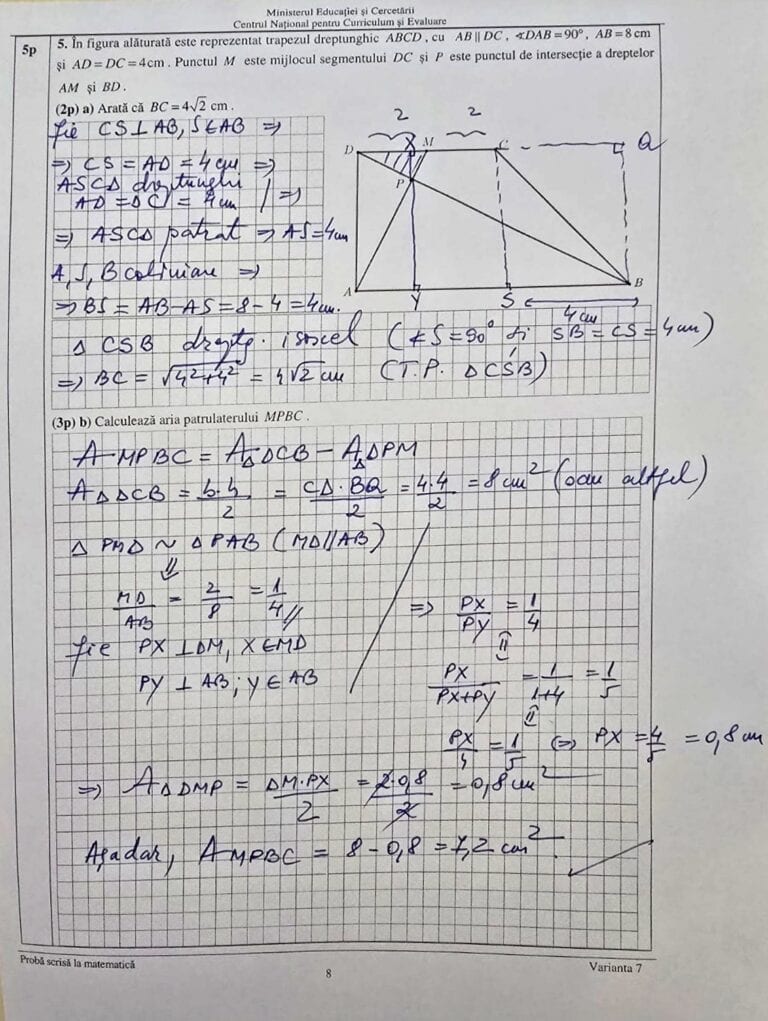 Ministerul Educației și Cercetării
Centrul Național pentru Curriculum și Evaluare
5p
5. În figura alăturată este reprezentat trapezul dreptunghic ABCD, cu AB ∥ DC, ∢DAB = 90°, AB = 8 cm
și AD = DC = 4 cm. Punctul M este mijlocul segmentului DC și P este punctul de intersecție a dreptelor
AM și BD.
(2p) a) Arată că BC = 4√2 cm.
fie CS ⊥ AB, S ∈ AB ⇒
⇒ CS = AD = 4 cm ⇒
ASCD dreptunghi
AD = DC = 4 cm | ⇒
⇒ ASCD pătrat ⇒ AS = 4 cm
A, S, B coliniare ⇒
⇒ BS = AB − AS = 8 − 4 = 4 cm.
2 2
D X M C Q
P
A Y S B
4 cm
Δ CSB drept. isoscel (∢S = 90° și SB = CS = 4 cm)
⇒ BC = √4²+4² = 4√2 cm (T.P. ΔCSB)
(3p) b) Calculează aria patrulaterului MPBC.
A MPBC = A ΔDCB − A ΔDPM
A ΔDCB = b·h/2 = CD·BQ/2 = 4·4/2 = 8 cm² (sau altfel)
Δ PMD ~ Δ PAB (MD//AB)
⇓
MD/AB = 2/8 = 1/4
fie PX ⊥ DM, X ∈ MD
PY ⊥ AB; Y ∈ AB
⇒ PX/PY = 1/4
⇓
PX/PX+PY = 1/1+4 = 1/5
⇓
PX/4 = 1/5 ⇔ PX = 4/5 = 0,8 cm
⇒ A ΔDMP = DM·PX/2 = 2·0,8/2 = 0,8 cm²
Așadar, A MPBC = 8 − 0,8 = 7,2 cm².
Probă scrisă la matematică
8
Varianta 7